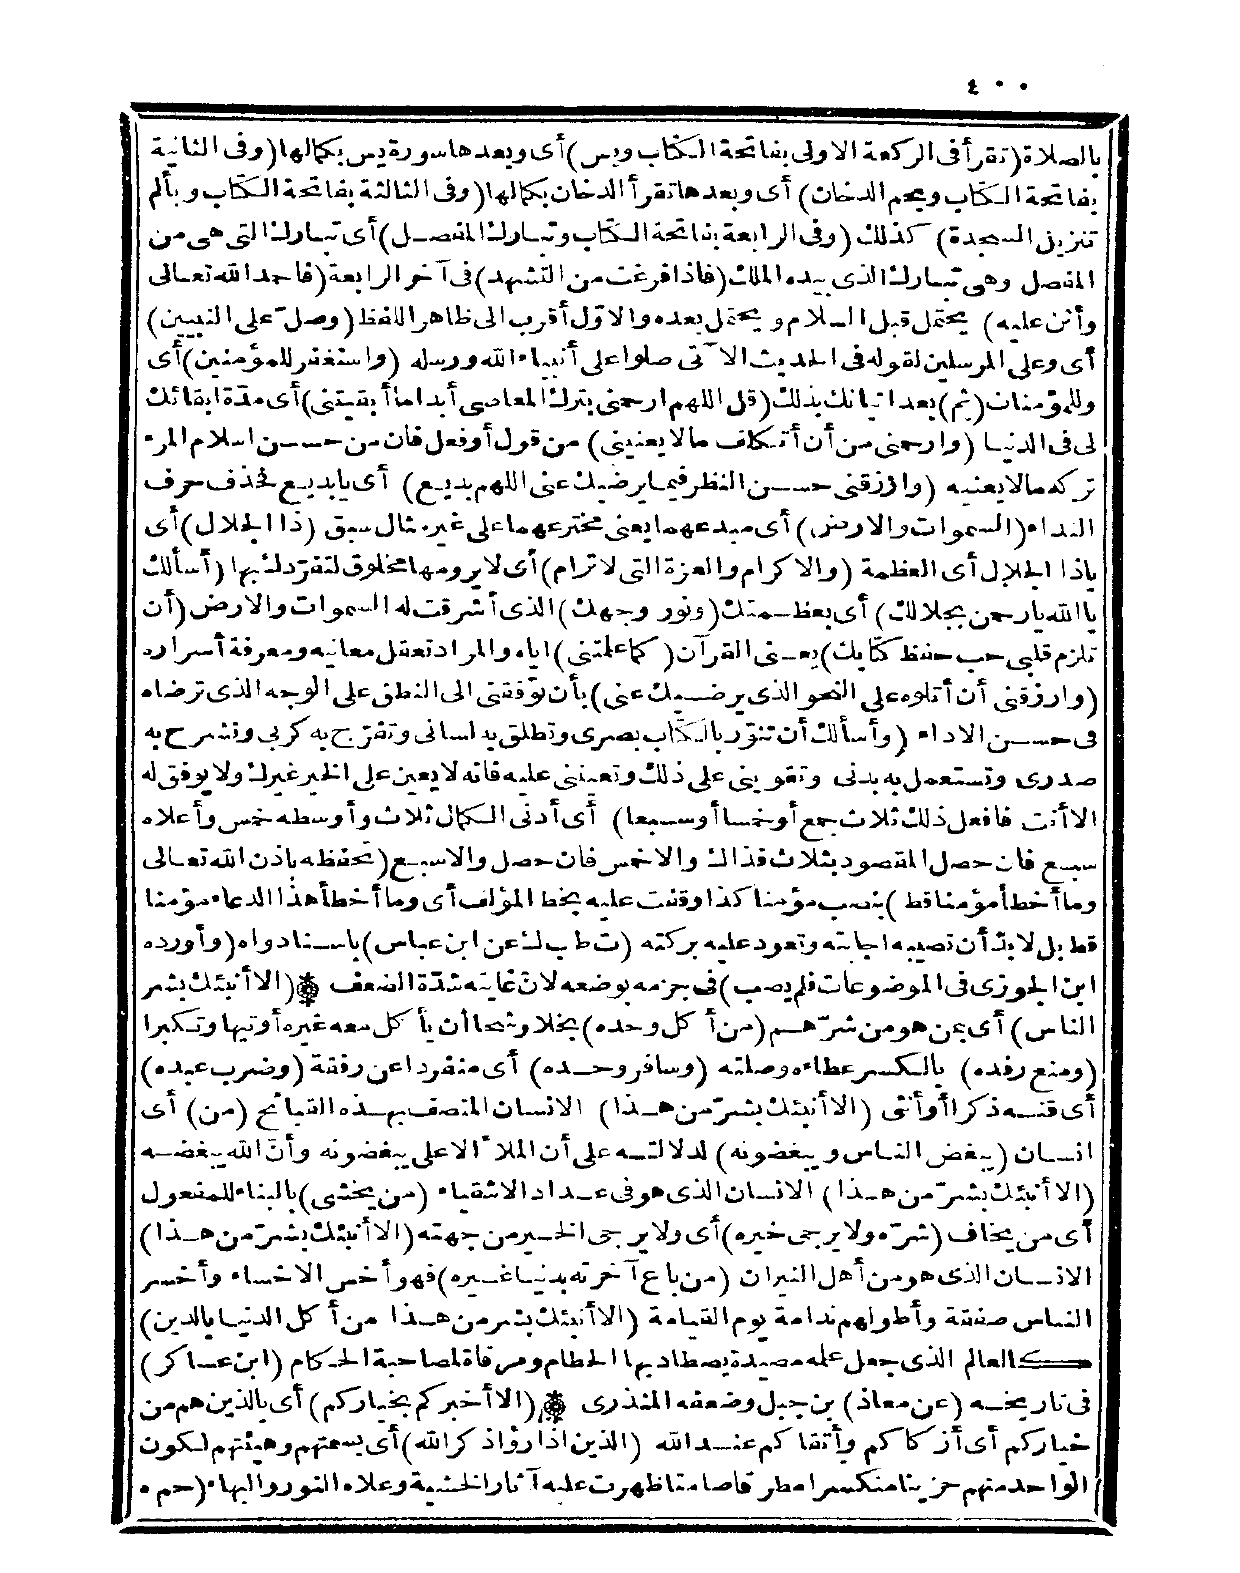 ٤٠٠
بالصلاة (تقرأ فى الركعة الاولى بفاتحة الكتاب ويس) أى وبعدها سورة يس بكمالها (وفى الثانية
بفاتحة الكتاب وبحم الدخان) أى وبعدها تقرأ الدخان بكمالها (وفى الثالثة بفاتحة الكتاب وبألم
تنزيل السجدة) كذلك (وفى الرابعة بفاتحة الكتاب وتبارك المفصل) أى تبارك التى هى من
المفصل وهى تبارك الذى بيده الملك (فاذا فرغت من التشهد) فى آخر الرابعة (فاحمد الله تعالى
وأثن عليه) يحتمل قبل السلام ويحتمل بعده والاول أقرب الى ظاهر اللفظ (وصل على النبيين)
أى وعلى المرسلين لقوله فى الحديث الآتى صلوا على أنبياء الله ورسله (واستغفر للمؤمنين) أى
وللمؤمنات (ثم) بعد اتيانك بذلك (قل اللهم ارحمنى بترك المعاصى أبدا ما أبقيتنى) أى مدّة ابقائك
لى فى الدنيا (وارحمنى من أن أتكلف ما لا يعنينى) من قول أو فعل فان من حسن اسلام المرء
تركه ما لا يعنيه (وارزقنى حسن النظر فيما يرضيك عنى اللهم بديع) أى يا بديع فحذف حرف
النداء (السموات والارض) أى مبدعهما يعنى مخترعهما على غير مثال سبق (ذا الجلال) أى
ياذا الجلال أى العظمة (والاكرام والعزة التى لا ترام) أى لا يرومها مخلوق لتفرّدك بها (أسألك
يا الله يا رحمن بجلالك) أى بعظمتك (ونور وجهك) الذى أشرقت له السموات والارض (أن
تلزم قلبى حب حفظ كتابك) يعنى القرآن (كما علمتنى) اياه والمراد تعقل معانيه ومعرفة أسراره
(وارزقنى أن أتلوه على النحو الذى يرضيك عنى) بأن توّفقنى الى النطق على الوجه الذى ترضاه
فى حسن الاداء (وأسألك أن تنوّر بالكتاب بصرى وتطلق به لسانى وتفرّج به كربى وتشرح به
صدرى وتستعمل به بدنى وتقوينى على ذلك وتعيننى عليه فانه لا يعين على الخير غيرك ولا يوفق له
الا أنت فافعل ذلك ثلاث جمع أو خمسا أو سبعا) أى أدنى الكمال ثلاث وأوسطه خمس وأعلاه
سبع فان حصل المقصود بثلاث فذاك والا خمس فان حصل والا سبع (تحفظه باذن الله تعالى
وما أخطأ مؤمنا قط) بنصب مؤمنا كذا وقفت عليه بخط المؤلف أى وما أخطأ هذا الدعاء مؤمنا
قط بل لابدّ أن تصيبه اجابته وتعود عليه بركته (ت طب ك عن ابن عباس) باسناد واه (وأورده
ابن الجوزى فى الموضوعات فلم يصب) فى جزمه بوضعه لانّ غايته شدّة الضعف ۞ (الا أنبئك بشر
الناس) أى بمن هو من شرّهم (من أكل وحده) بخلا وشحا أن يأكل معه غيره أو تيها وتكبرا
(ومنع رفده) بالكسر عطاءه وصلته (وسافر وحده) أى منفردا عن رفقة (وضرب عبده)
أى قنه ذكرا أو أنثى (الا أنبئك بشرّ من هذا) الانسان المتصف بهذه القبائح (من) أى
انسان (يبغض الناس ويبغضونه) لدلالته على أن الملأ الاعلى يبغضونه وأنّ الله يبغضه
(الا أنبئك بشرّ من هذا) الانسان الذى هو فى عداد الاشقياء (من يخشى) بالبناء للمفعول
أى من يخاف (شرّه ولا يرجى خيره) أى ولا يرجى الخير من جهته (الا أنبئك بشرّ من هذا)
الانسان الذى هو من أهل النيران (من باع آخرته بدنيا غيره) فهو أخس الاخساء وأخسر
الناس صفقة وأطولهم ندامة يوم القيامة (الا أنبئك بشر من هذا من أكل الدنيا بالدين)
كالعالم الذى جعل علمه مصيدة يصطاد بها الحطام ومرقاة لمصاحبة الحكام (ابن عساكر)
فى تاريخه (عن معاذ) بن جبل وضعفه المنذرى ۞ (الا أخبركم بخياركم) أى بالذين هم من
خياركم أى أزكاكم وأتقاكم عند الله (الذين اذا رؤاذكر الله) أى بسمتهم وهيئتهم لكون
الواحد منهم حزينا منكسرا مطرقا صامتا ظهرت عليه آثار الخشية وعلاه النور والبهاء (حم ه